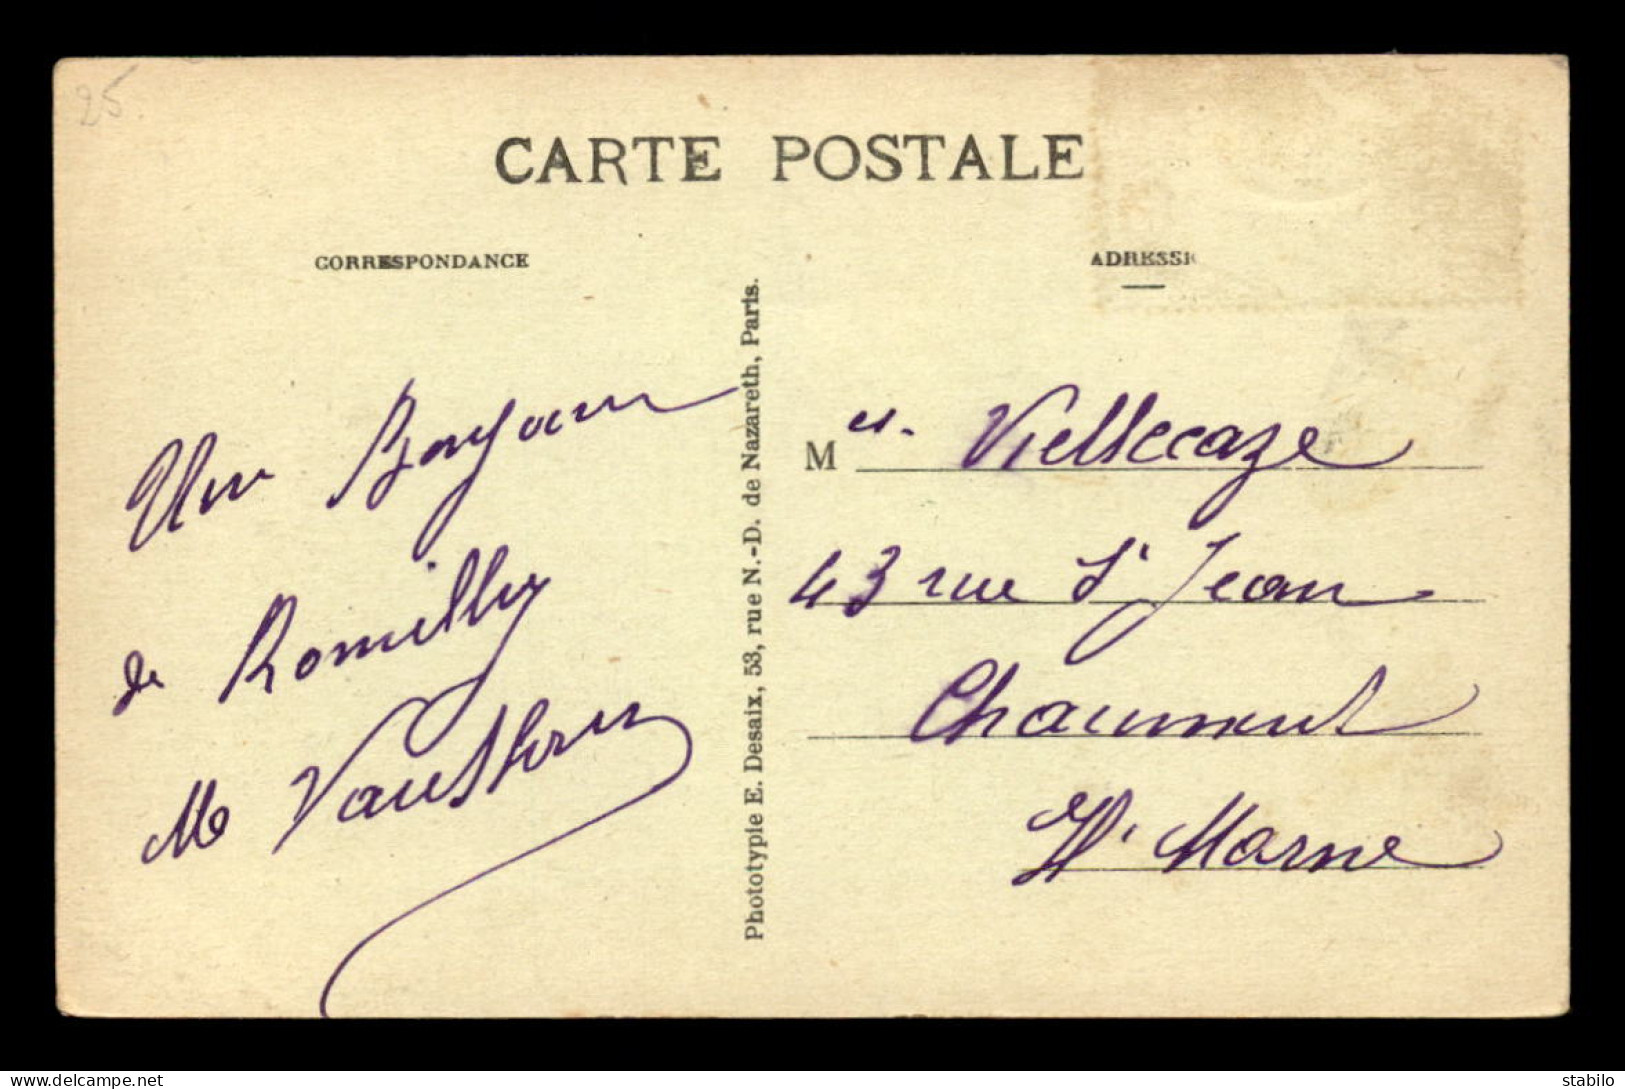 25
CARTE POSTALE
CORRESPONDANCE
ADRESSE
Un Bonjour
de Romilly
M
Phototypie E. Desaix, 53, rue N.-D. de Nazareth, Paris.
M Viellecaze
43 rue St Jean
Chaumont
Hte Marne
delcampe.net
stabilo